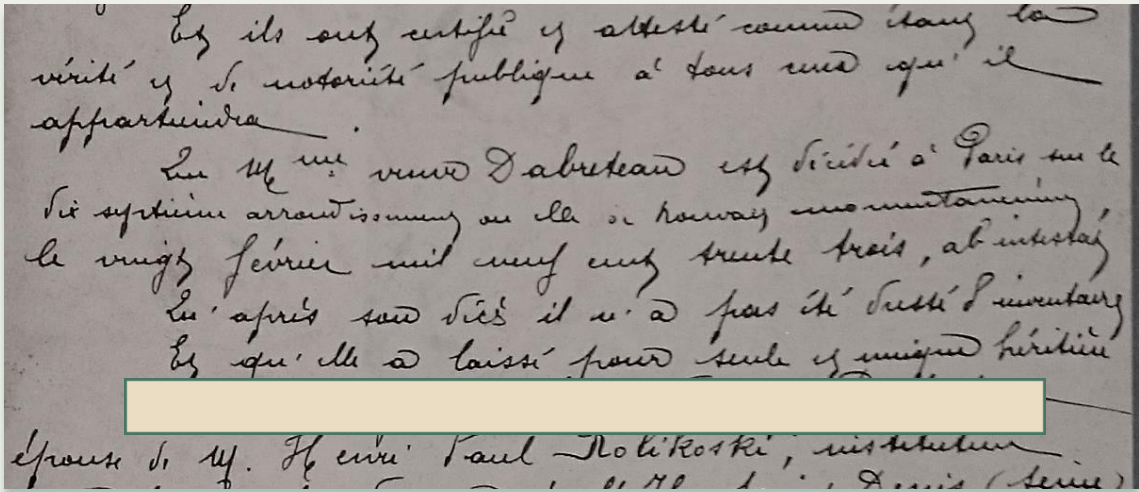 Et ils ont certifié et attesté comme étant la
vérité et de notoriété publique à tous ceux qu'il
appartiendra.
Que Mme veuve Dabreteau est décédée à Paris sur le
dix septième arrondissement où elle se trouvait momentanément,
le vingt février mil neuf cent trente trois, ab intestat
Qu'après son décès il n'a pas été dressé d'inventaire
Et qu'elle a laissé pour seule et unique héritière
épouse de M. Henri Paul Rolikoski, instituteur
Denis (Seine)